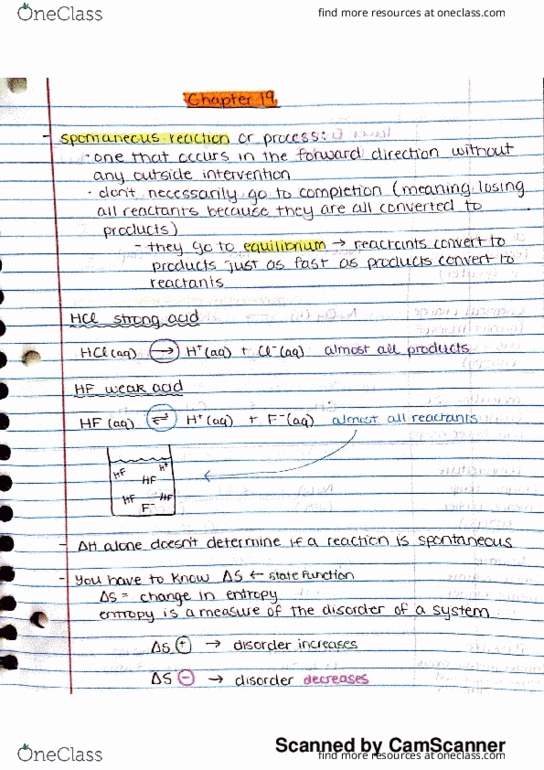 OneClass
find more resources at oneclass.com
Chapter 19
- spontaneous reaction or process:
· one that occurs in the forward direction without
any outside intervention
· don't necessarily go to completion (meaning losing
all reactants because they are all converted to
products)
- they go to equilibrium → reactants convert to
products just as fast as products convert to
reactants
HCl strong acid
HCl(aq) → H⁺(aq) + Cl⁻(aq) almost all products
HF weak acid
HF(aq) ⇌ H⁺(aq) + F⁻(aq) almost all reactants
HF H⁺
HF
HF HF
F⁻
- ΔH alone doesn't determine if a reaction is spontaneous
- You have to know ΔS ← state function
ΔS = change in entropy
entropy is a measure of the disorder of a system
ΔS + → disorder increases
ΔS - → disorder decreases
Scanned by CamScanner
OneClass
find more resources at oneclass.com